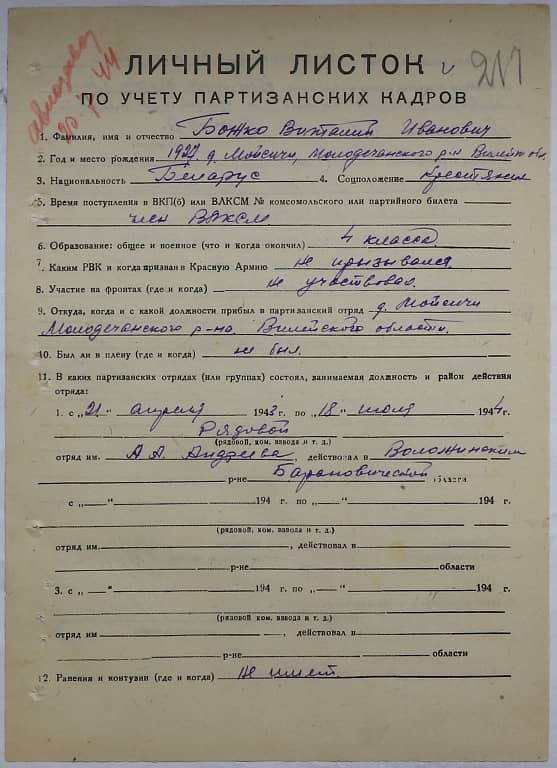 ЛИЧНЫЙ ЛИСТОК
217
ПО УЧЕТУ ПАРТИЗАНСКИХ КАДРОВ
1. Фамилия, имя и отчество Божко Виталий Иванович
2. Год и место рождения 1927 д. Мойсичи, Молодечанского р-н Вилейск обл.
3. Национальность Беларус 4. Соцположение Крестянин
5. Время поступления в ВКП(б) или ВЛКСМ № комсомольского или партийного билета
член ВЛКСМ
6. Образование: общее и военное (что и когда окончил) 4 класса
7. Каким РВК и когда призван в Красную Армию не прызывался.
8. Участие на фронтах (где и когда) не участвовал.
9. Откуда, когда и с какой должности прибыл в партизанский отряд д. Мойсичи
Молодечанского р-на. Вилейского области.
10. Был ли в плену (где и когда) не был.
11. В каких партизанских отрядах (или группах) состоял, занимаемая должность и район действия
отряда:
1. с „21" апреля 1943 г. по „18" июля 1944 г.
Рядовой
(рядовой, ком. взвода и т. д.)
отряд им. А. А. Андреева, действовал в Воложинским
р-не Барановической области
с „—" 194 г. по „—" 194 г.
(рядовой, ком. взвода и т. д.)
отряд им. , действовал в
р-не области
3. с „—" 194 г. по „—" 194 г.
(рядовой, ком. взвода и т. д.)
отряд им , действовал в
р-не области
12. Ранения и контузии (где и когда) Не имеет.